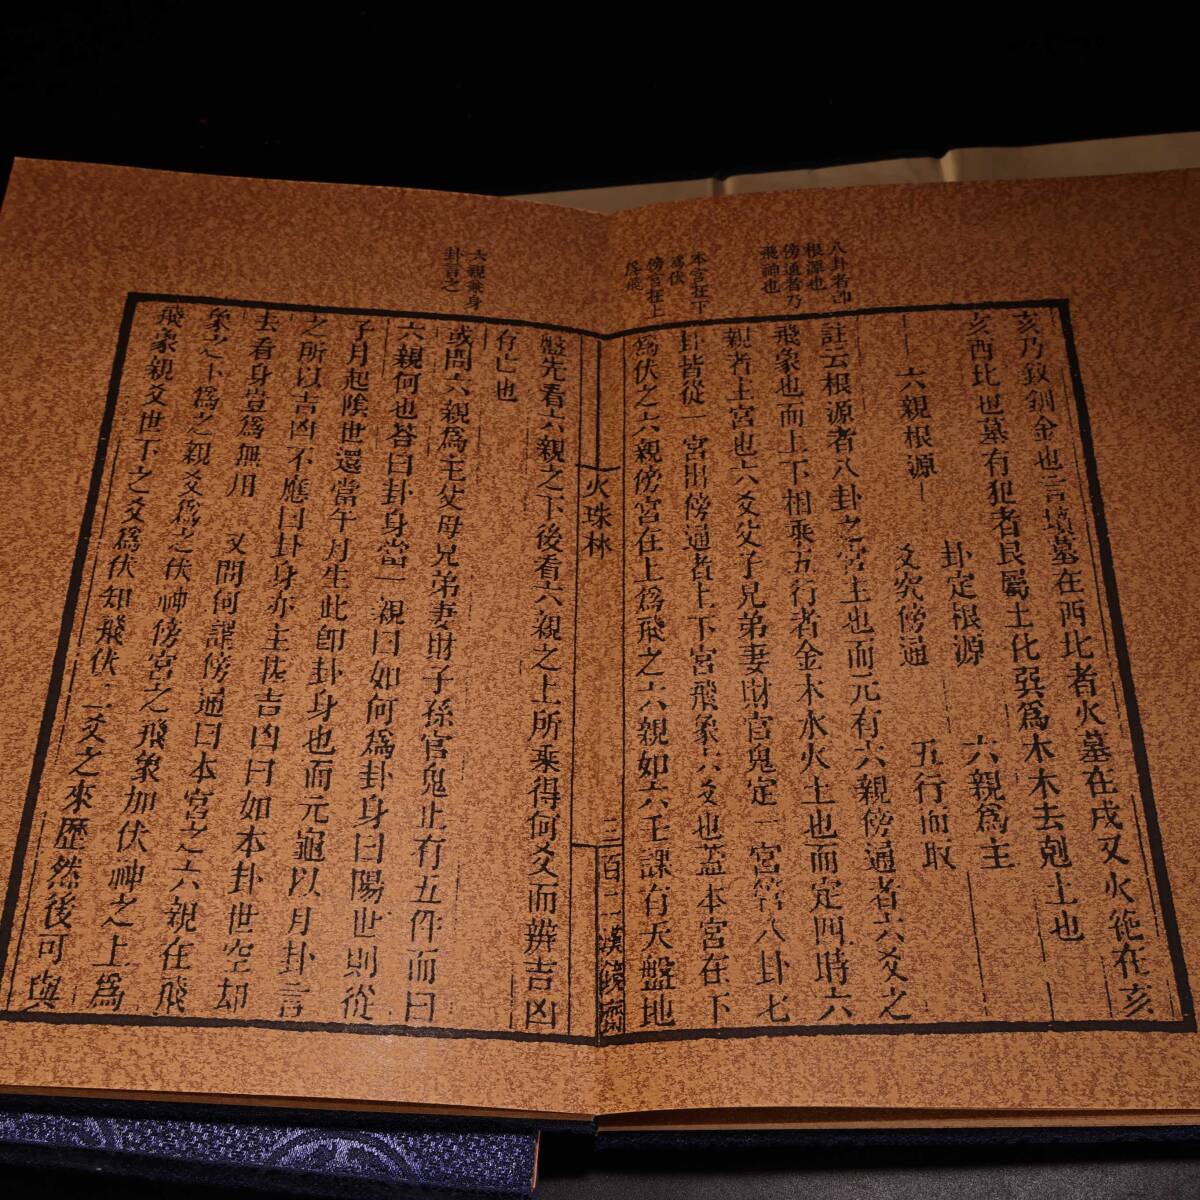 亥乃致銅金也言墳墓在西北者火墓在戌又火絶在亥
亥西北也墓有犯者艮屬土化巽爲木木去剋土也
六親根源 卦定根源 六親爲主
爻究傍通 五行而取
註云根源者八卦之宮主也而元有六親傍通者六爻之
飛象也而上下相乘五行者金木水火土也而定四時六
親者主宮也六爻父子兄弟妻財官鬼定一宮管八卦七
卦皆從一宮出傍通者上下宮飛象六爻也蓋本宮在下
爲伏之六親傍宮在上爲飛之六親如六壬課有天盤地
八卦者即
根源也
傍通者乃
飛神也
本宮在下
爲伏
傍宮在上
爲飛
火珠林
三百二
漢鏡齋
盤先看六親之下後看六親之上所乘得何爻而辨吉凶
存亡也
或問六親爲主父母兄弟妻財子孫官鬼止有五件而曰
六親何也答曰卦身當一親曰如何爲卦身曰陽世則從
子月起陰世還當午月生此卽卦身也而元龜以月卦言
之所以吉凶不應曰卦身亦主張吉凶曰如本卦世空却
去看身豈爲無用 又問何謂傍通曰本宮之六親在飛
象之下爲之親爻爲之伏神傍宮之飛象加伏神之上爲
飛象親爻世下之爻爲伏知飛伏二爻之來歷然後可與
六親兼身
卦言之